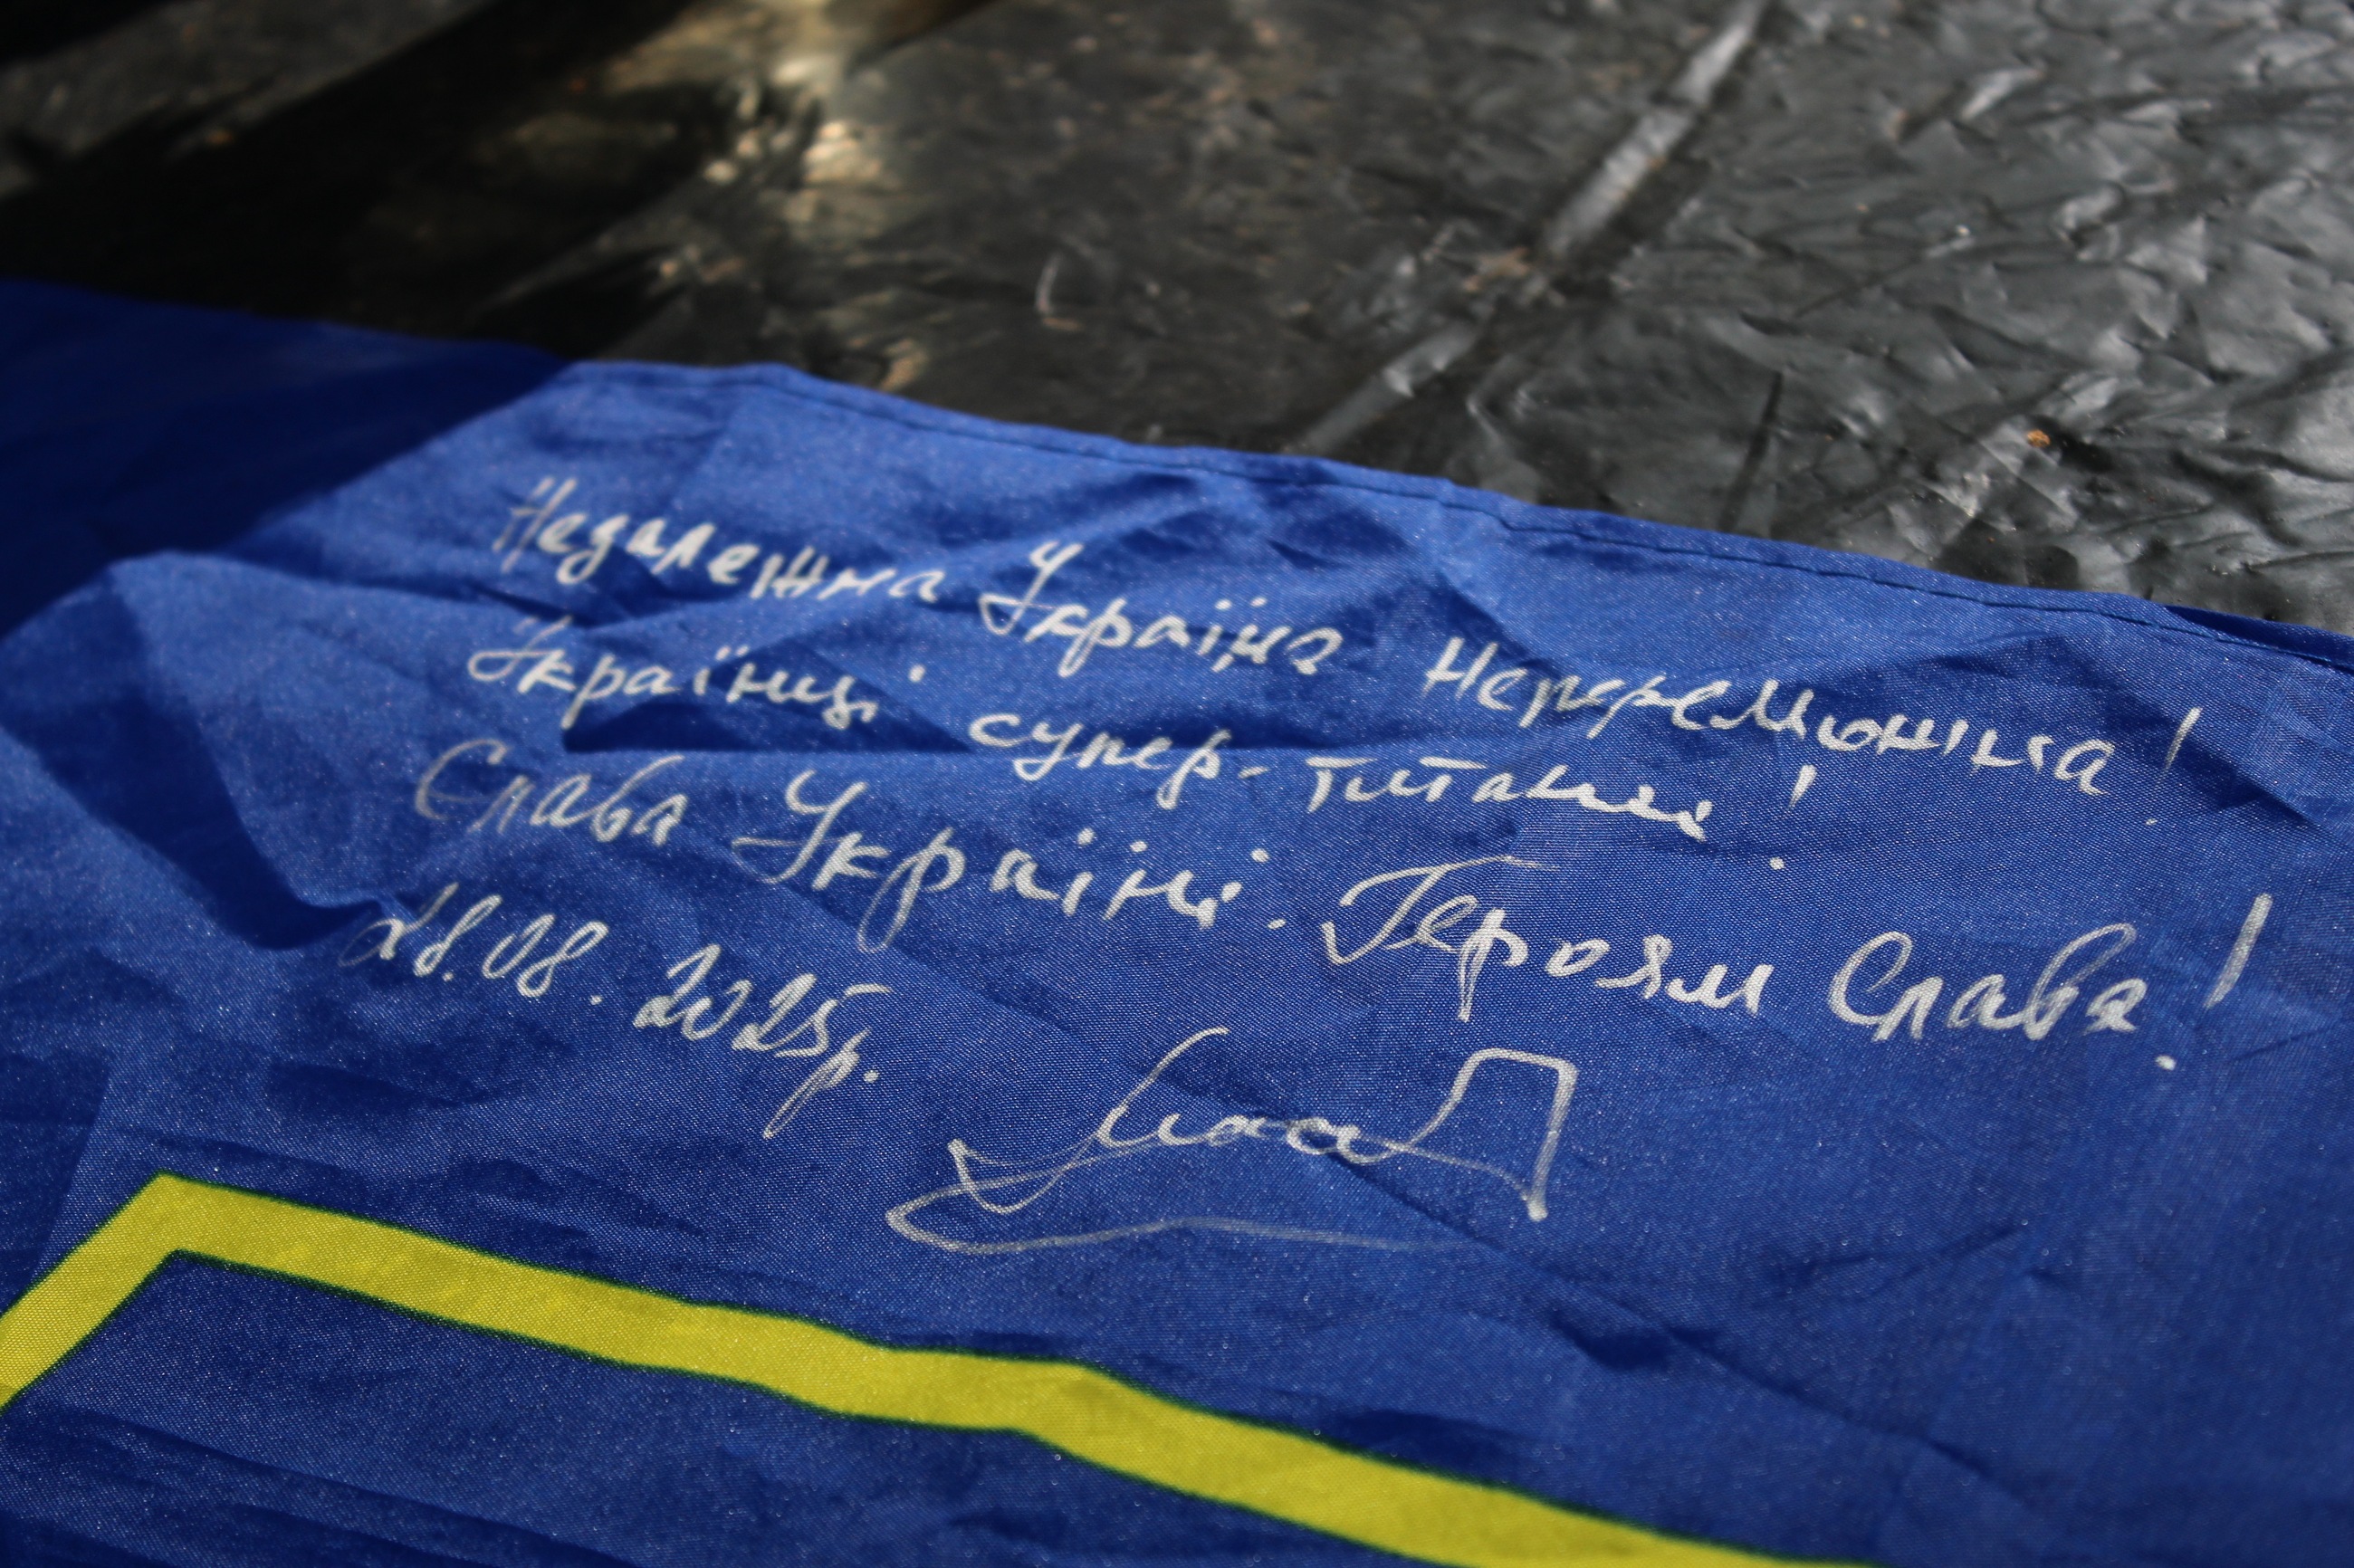 Незалежна Україна Непереможна!
Українці супер-титани!
Слава Україні. Героям Слава!
28.08.2025р.